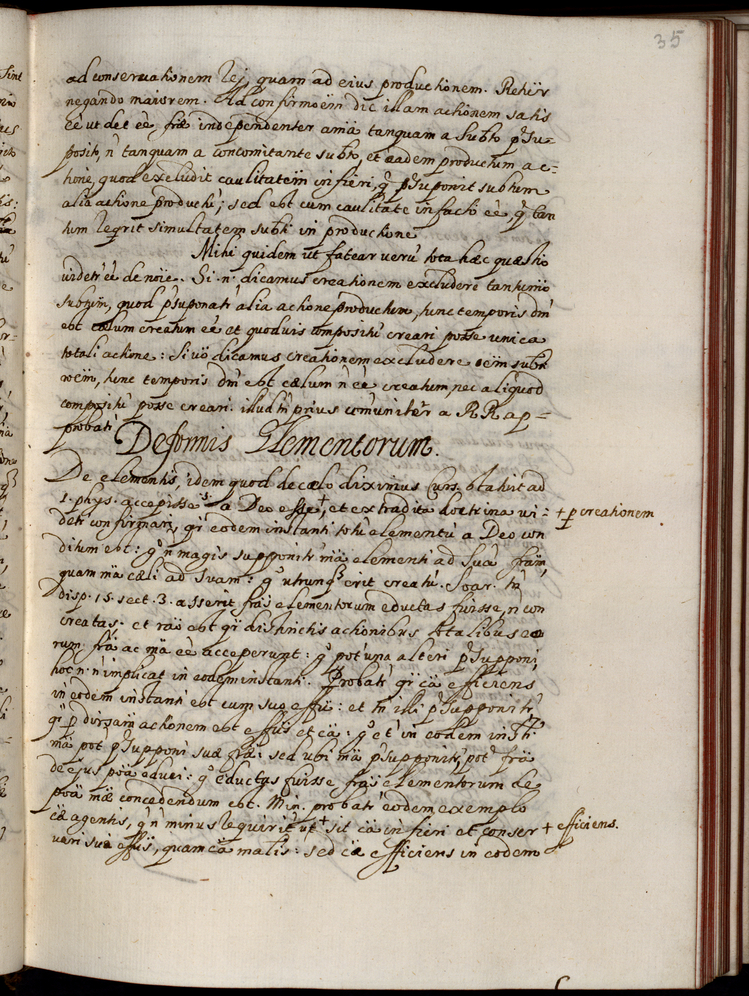 35
ad conservationem rej, quam ad eius productionem. Rehijr
negando maiorem. Ad confirmoëm dic illam actionem satis
eë ut det eë, fræ independenter a mä tanquam a Subto pŝu-
posito, n̄ tanquam a concomitante subto, et eadem productum ac-
tione, quod excludit caulitatem in fieri, q̃ pŝuponit subtum
alia actione productu; sed est cum caulitate in facto eë, q̃ tan
tum reqrit simultatem subti in productione
Mihi quidem ut fatear verũ tota hæc quæstio
videtr eë de nöie. Si n. dicamus creationem excludere tantum
subtum, quod pŝuponatr alia actione productum, tunc temporis dm̃
est cælum creatum eë et quodvis compositũ creari posse unica
totali actione: Si vö dicamus creationem excludere oëm subti
roëm, tunc temporis dm̃ est cælum n̄ eë creatum nec aliquod
compositũ posse creari. illud tñ prius comuniter a RR ap-
probatr
De formis Elementorum.
De elementis, idem quod de cælo diximus Curs. statuit ad
1. phys. accepisse s. a Deo esse +, et ex tradita doctrina vi-
detr confirmari, qr̃ eodem instanti totũ elementũ a Deo con
+ p creationem
ditum est: g̊ n̄ magis supponitr mä elementi ad suä främ,
quam mä cæli ad suam: g̊ utrunq̃ erit creatũ. Soar. tñ
disp. 15. sect. 3. asserit fräs elementorum eductas fuisse, n̄ con
creatas. et raö est qr̃ distinctis actionibus totalibus eo
rum frä ac mä eë acceperunt: g̊ pot una alteri pŝupponi
hoc n. n̄ implicat in eodem instanti. Probatr qr̃ cä efficiens
in eodem instanti est cum suo effũ: et tñ illi pŝupponitr,
qr̃ p diversam actionem est effũs et cä: g̊ et in eodem insti
mä pot pŝupponi suæ fræ: sed ubi mä pŝupponitr, pot frä
de ejus poä educi: g̊ eductas fuisse fräs elementorum de
poä mæ concedendum est. Min. probatr eodem exemplo
cæ agentis, q̃ n̄ minus requiritr ut + sit cä in fieri et conser
+ efficiens.
vari sui effũs, quam cä matis: sed cä efficiens in eodem